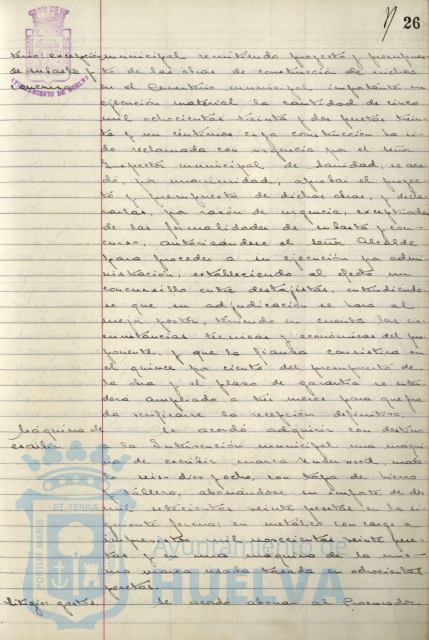 26
terio: excepción
de subasta y
concurso
AYUNTAMIENTO DE HUELVA
municipal remitiendo proyecto y presupues-
to de las obras de construcción de nichos
en el Cementerio municipal importante su
ejecución material la cantidad de cinco
mil ochocientas treinta y dos pesetas trein-
ta y un céntimos cuya construcción ha si-
do reclamada con urgencia por el señor
Inspector municipal de Sanidad, se acor-
dó, por unanimidad, aprobar el proyec-
to y presupuesto de dichas obras, y decla-
rarlas, por razón de urgencia, exceptuadas
de las formalidades de subasta y con-
curso, autorizándose al señor Alcalde
para proceder a su ejecución por admi-
nistración, estableciendo al efecto un
concursillo entre destajistas, entendiéndo-
se que su adjudicación se hará al
mejor postor, teniendo en cuenta las cir-
cunstancias técnicas y económicas del pro-
ponente, y que la fianza consistirá en
el quince por ciento del presupuesto de
la obra y el plazo de garantía se enten-
derá ampliado a tres meses para que pue-
da verificarse la recepción definitiva.
Máquina de
escribir
Se acordó adquirir con destino
a la Intervención municipal una máqui-
na de escribir, marca Underwood, mode-
lo seis dies y ocho, con de
y tablero, abonándose su importe de dos
mil setecientas veinte pesetas en la si-
guiente forma: en metálico con cargo a
imprevistos mil novecientas veinte pese-
tas y una máquina de la mis-
ma marca usada tasada en ochocientas
pesetas.
Litigio: gastos.
Se acordó abonar al Procurador
PORTUS MARIS
ET TERRAE
Ayuntamiento de
HUELVA